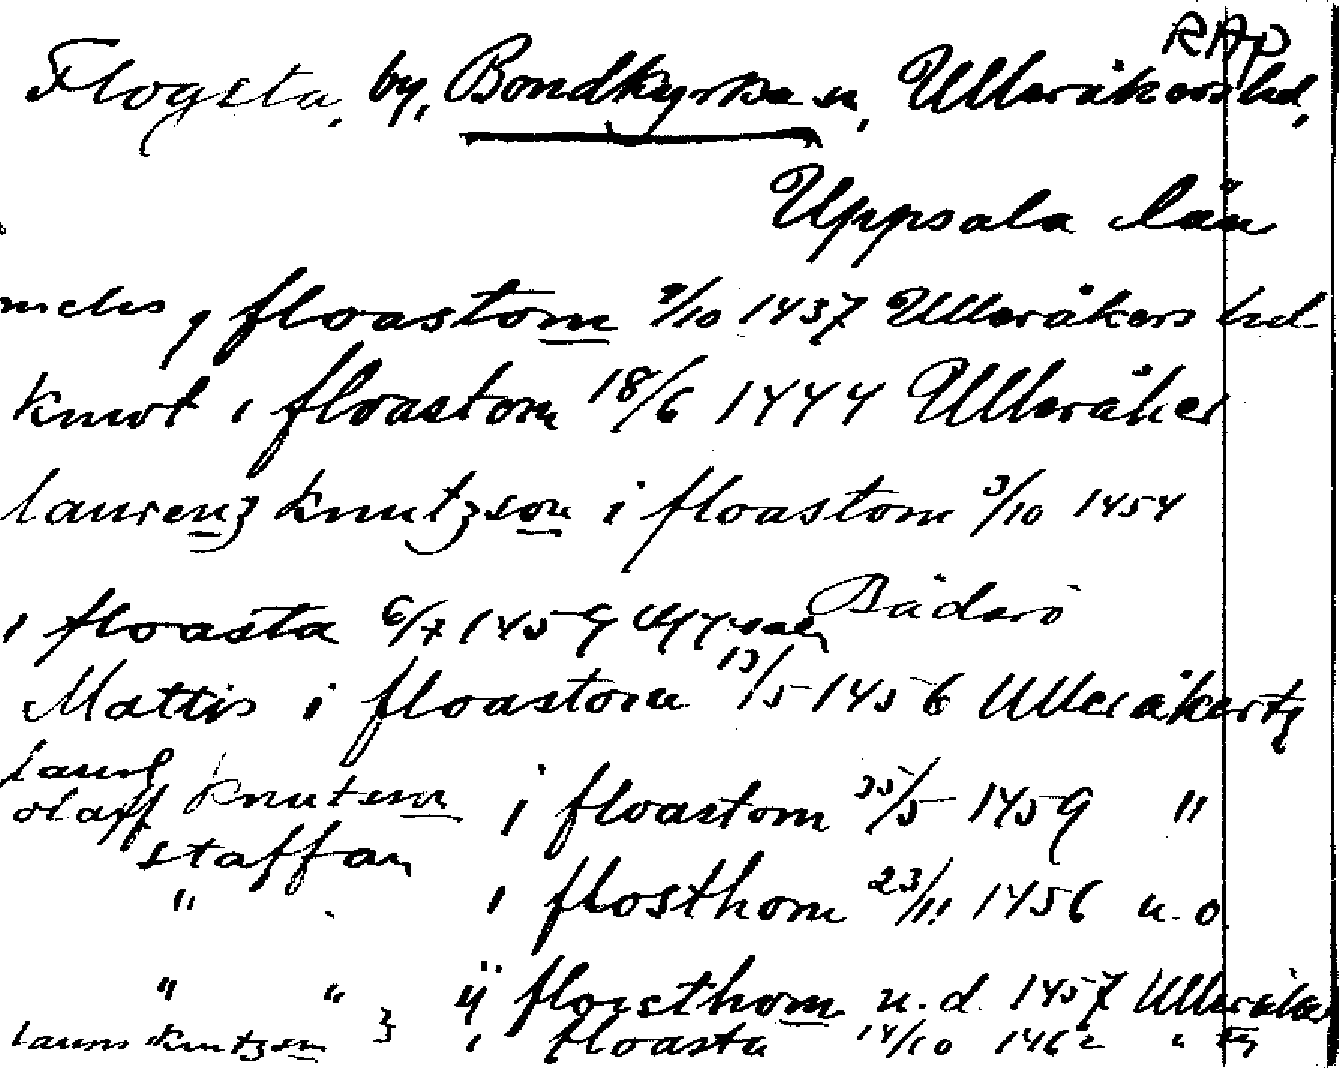 RAP
Flogsta, by, Bondkyrka sn, Ulleråkers hd,
Uppsala län
i floastom 9/10 1437 Ulleråkers hd
knwt i floastom 18/6 1444 Ulleråker
laurenz knutzson i floastom 3/10 1454
i floasta 6/7 1459 Bäderö
Mattis i floastom 13/5 1456 Ulleråkertz
laur
olaff knutson i floastom 25/5 1459 "
staffan
" i flosthom 23/11 1456 u.o
" " ij floesthom u.d. 1457 Ulleråker
laurns knutzson } i floasta 14/10 1462 "